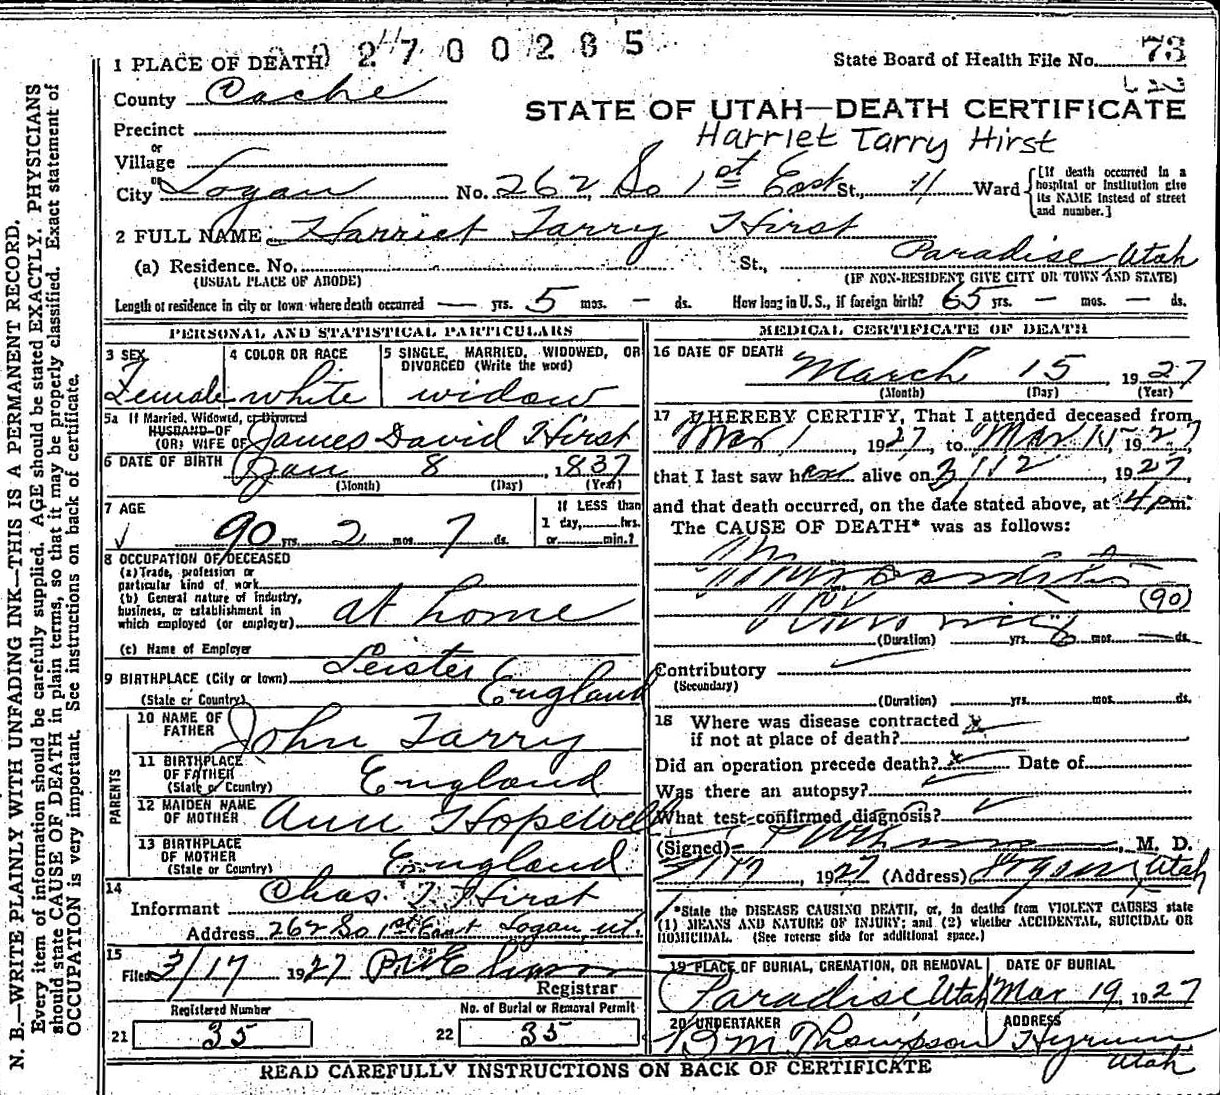 02700265
State Board of Health File No. 73
1 PLACE OF DEATH
County Cache
STATE OF UTAH—DEATH CERTIFICATE
Harriet Tarry Hirst
Precinct
or
Village
or
City Logan No. 262 So 1st East St., 11 Ward
[If death occurred in a hospital or institution give its NAME instead of street and number.]
2 FULL NAME Harriet Tarry Hirst
(a) Residence. No. St., Paradise Utah
(USUAL PLACE OF ABODE) (IF NON-RESIDENT GIVE CITY OR TOWN AND STATE)
Length of residence in city or town where death occurred — yrs. 5 mos. — ds. How long in U.S., if foreign birth? 65 yrs. — mos. — ds.
PERSONAL AND STATISTICAL PARTICULARS
3 SEX
Female
4 COLOR OR RACE
white
5 SINGLE, MARRIED, WIDOWED, OR
DIVORCED (Write the word)
widow
5a If Married, Widowed, or Divorced
HUSBAND OF
(OR) WIFE OF James David Hirst
6 DATE OF BIRTH Jan 8, 1837
(Month) (Day) (Year)
7 AGE
90 yrs. 2 mos. 7 ds.
If LESS than
1 day, hrs.
or min.?
8 OCCUPATION OF DECEASED
(a) Trade, profession or
particular kind of work
(b) General nature of industry,
business, or establishment in
which employed (or employer) at home
(c) Name of Employer
9 BIRTHPLACE (City or town) Leister
(State or Country) England
PARENTS
10 NAME OF
FATHER John Tarry
11 BIRTHPLACE
OF FATHER
(State or Country) England
12 MAIDEN NAME
OF MOTHER Ann Hopewell
13 BIRTHPLACE
OF MOTHER
(State or Country) England
14
Informant Chas. T. Hirst
Address 262 So 1st East Logan, ut.
15
Filed 3/17 1927
Registrar
Registered Number
21 35
No. of Burial or Removal Permit
22 35
MEDICAL CERTIFICATE OF DEATH
16 DATE OF DEATH
March 15, 1927
(Month) (Day) (Year)
17 I HEREBY CERTIFY, That I attended deceased from
Mar 1 1927, to Mar 15, 1927
that I last saw her alive on 3/12, 1927
and that death occurred, on the date stated above, at 4 p.m.
The CAUSE OF DEATH* was as follows:
(90)
(Duration) yrs. mos. ds.
Contributory
(Secondary)
(Duration) yrs. mos. ds.
18 Where was disease contracted
if not at place of death?
Did an operation precede death? Date of
Was there an autopsy?
What test confirmed diagnosis?
(Signed) , M. D.
3/17, 1927 (Address) Hyrum, Utah
*State the DISEASE CAUSING DEATH, or, in deaths from VIOLENT CAUSES state
(1) MEANS AND NATURE OF INJURY; and (2) whether ACCIDENTAL, SUICIDAL OR
HOMICIDAL. (See reverse side for additional space.)
19 PLACE OF BURIAL, CREMATION, OR REMOVAL
Paradise Utah
DATE OF BURIAL
Mar 19, 1927
20 UNDERTAKER
Thompson
ADDRESS
Hyrum
Utah
READ CAREFULLY INSTRUCTIONS ON BACK OF CERTIFICATE
N. B.—WRITE PLAINLY WITH UNFADING INK—THIS IS A PERMANENT RECORD.
Every item of information should be carefully supplied. AGE should be stated EXACTLY. PHYSICIANS
should state CAUSE OF DEATH in plain terms, so that it may be properly classified. Exact statement of
OCCUPATION is very important. See instructions on back of certificate.